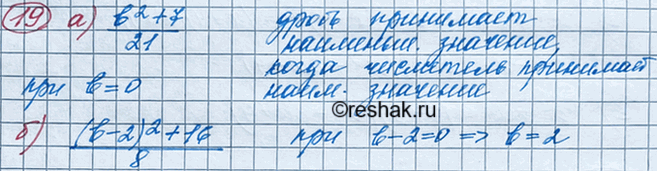 19 а) (b²+7)/21 дробь принимает
наименьш. значение,
когда числитель принимает
при b=0 наим. значение
©reshak.ru
б) ((b-2)²+16)/8 при b-2=0 => b=2